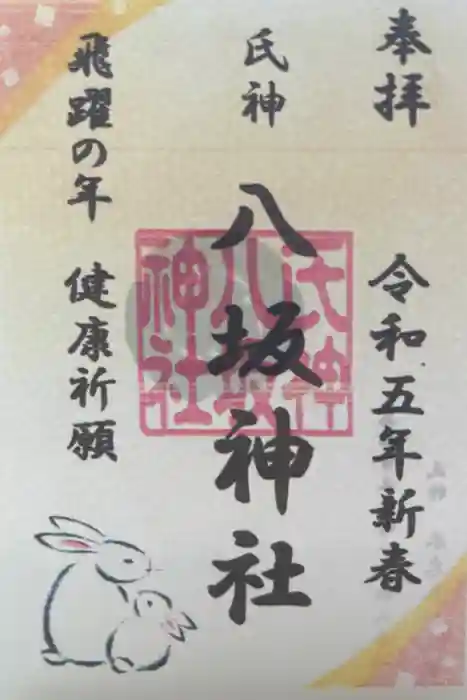 奉拝
令和五年新春
氏神
八坂神社
氏神
八坂
神社
飛躍の年
健康祈願